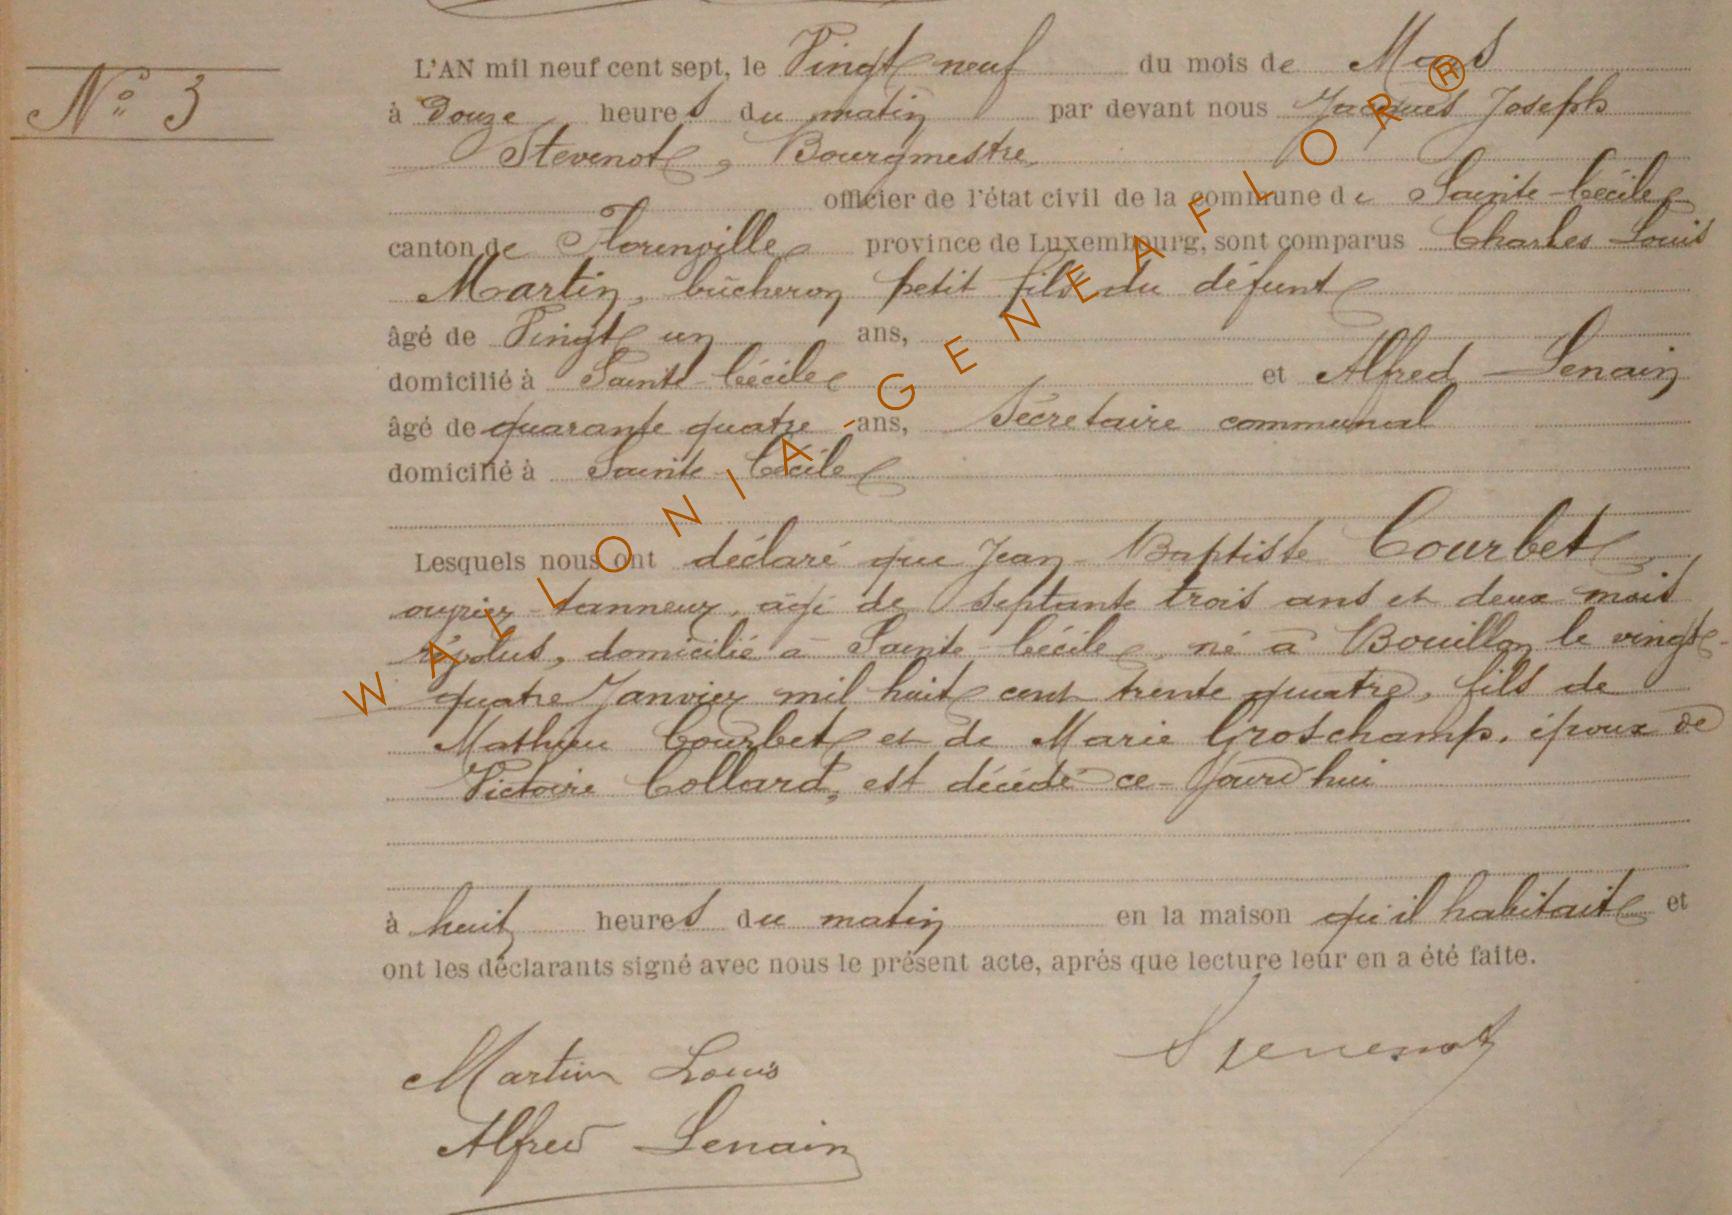 N° 3
L'AN mil neuf cent sept, le Vingt neuf du mois de Mars
à Douze heures du matin par devant nous Jacques Joseph
Stevenot, Bourgmestre
officier de l'état civil de la commune de Sainte-Cécile
canton de Florenville province de Luxembourg, sont comparus Charles Louis
Martin, bûcheron petit fils du défunt
âgé de Vingt un ans,
domicilié à Sainte-Cécile et Alfred Lenain
âgé de quarante quatre ans, Secrétaire communal
domicilié à Sainte-Cécile
Lesquels nous ont déclaré que Jean-Baptiste Courbet
ouvrier-tanneur, âgé de Septante trois ans et deux mois
révolus, domicilié à Sainte-Cécile, né à Bouillon le vingt-
quatre Janvier mil huit cent trente quatre, fils de
Mathieu Courbet et de Marie Groschamp, époux de
Victoire Collard, est décédé ce-jourd'hui
à huit heures du matin en la maison qu'il habitait et
ont les déclarants signé avec nous le présent acte, après que lecture leur en a été faite.
Martin Louis
Stevenot
Alfred Lenain
WALLONIA-GENEAFLOR®